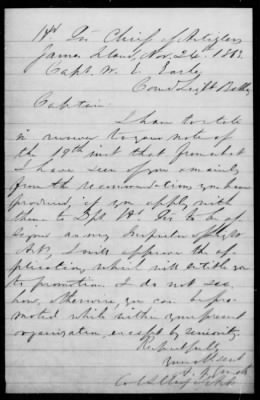 Hd Qrs Chief of Artillery
James Island, Nov. 24th 1863
Capt. W. E. Earle
Comd Light Batty
Captain
I have to state
in answer to your note of
the 19th inst that from what
I have seen of you & mainly
from the recommendations you have
produced, if you apply with
them to Dpt Hd Qrs to be
signed as my Inspector
Art, I will approve the ap
plication, which will entitle you
to promotion. I do not see
how, otherwise, you can be pro
moted while within your present
organization, except by seniority.
Respectfully
Your obt Servt